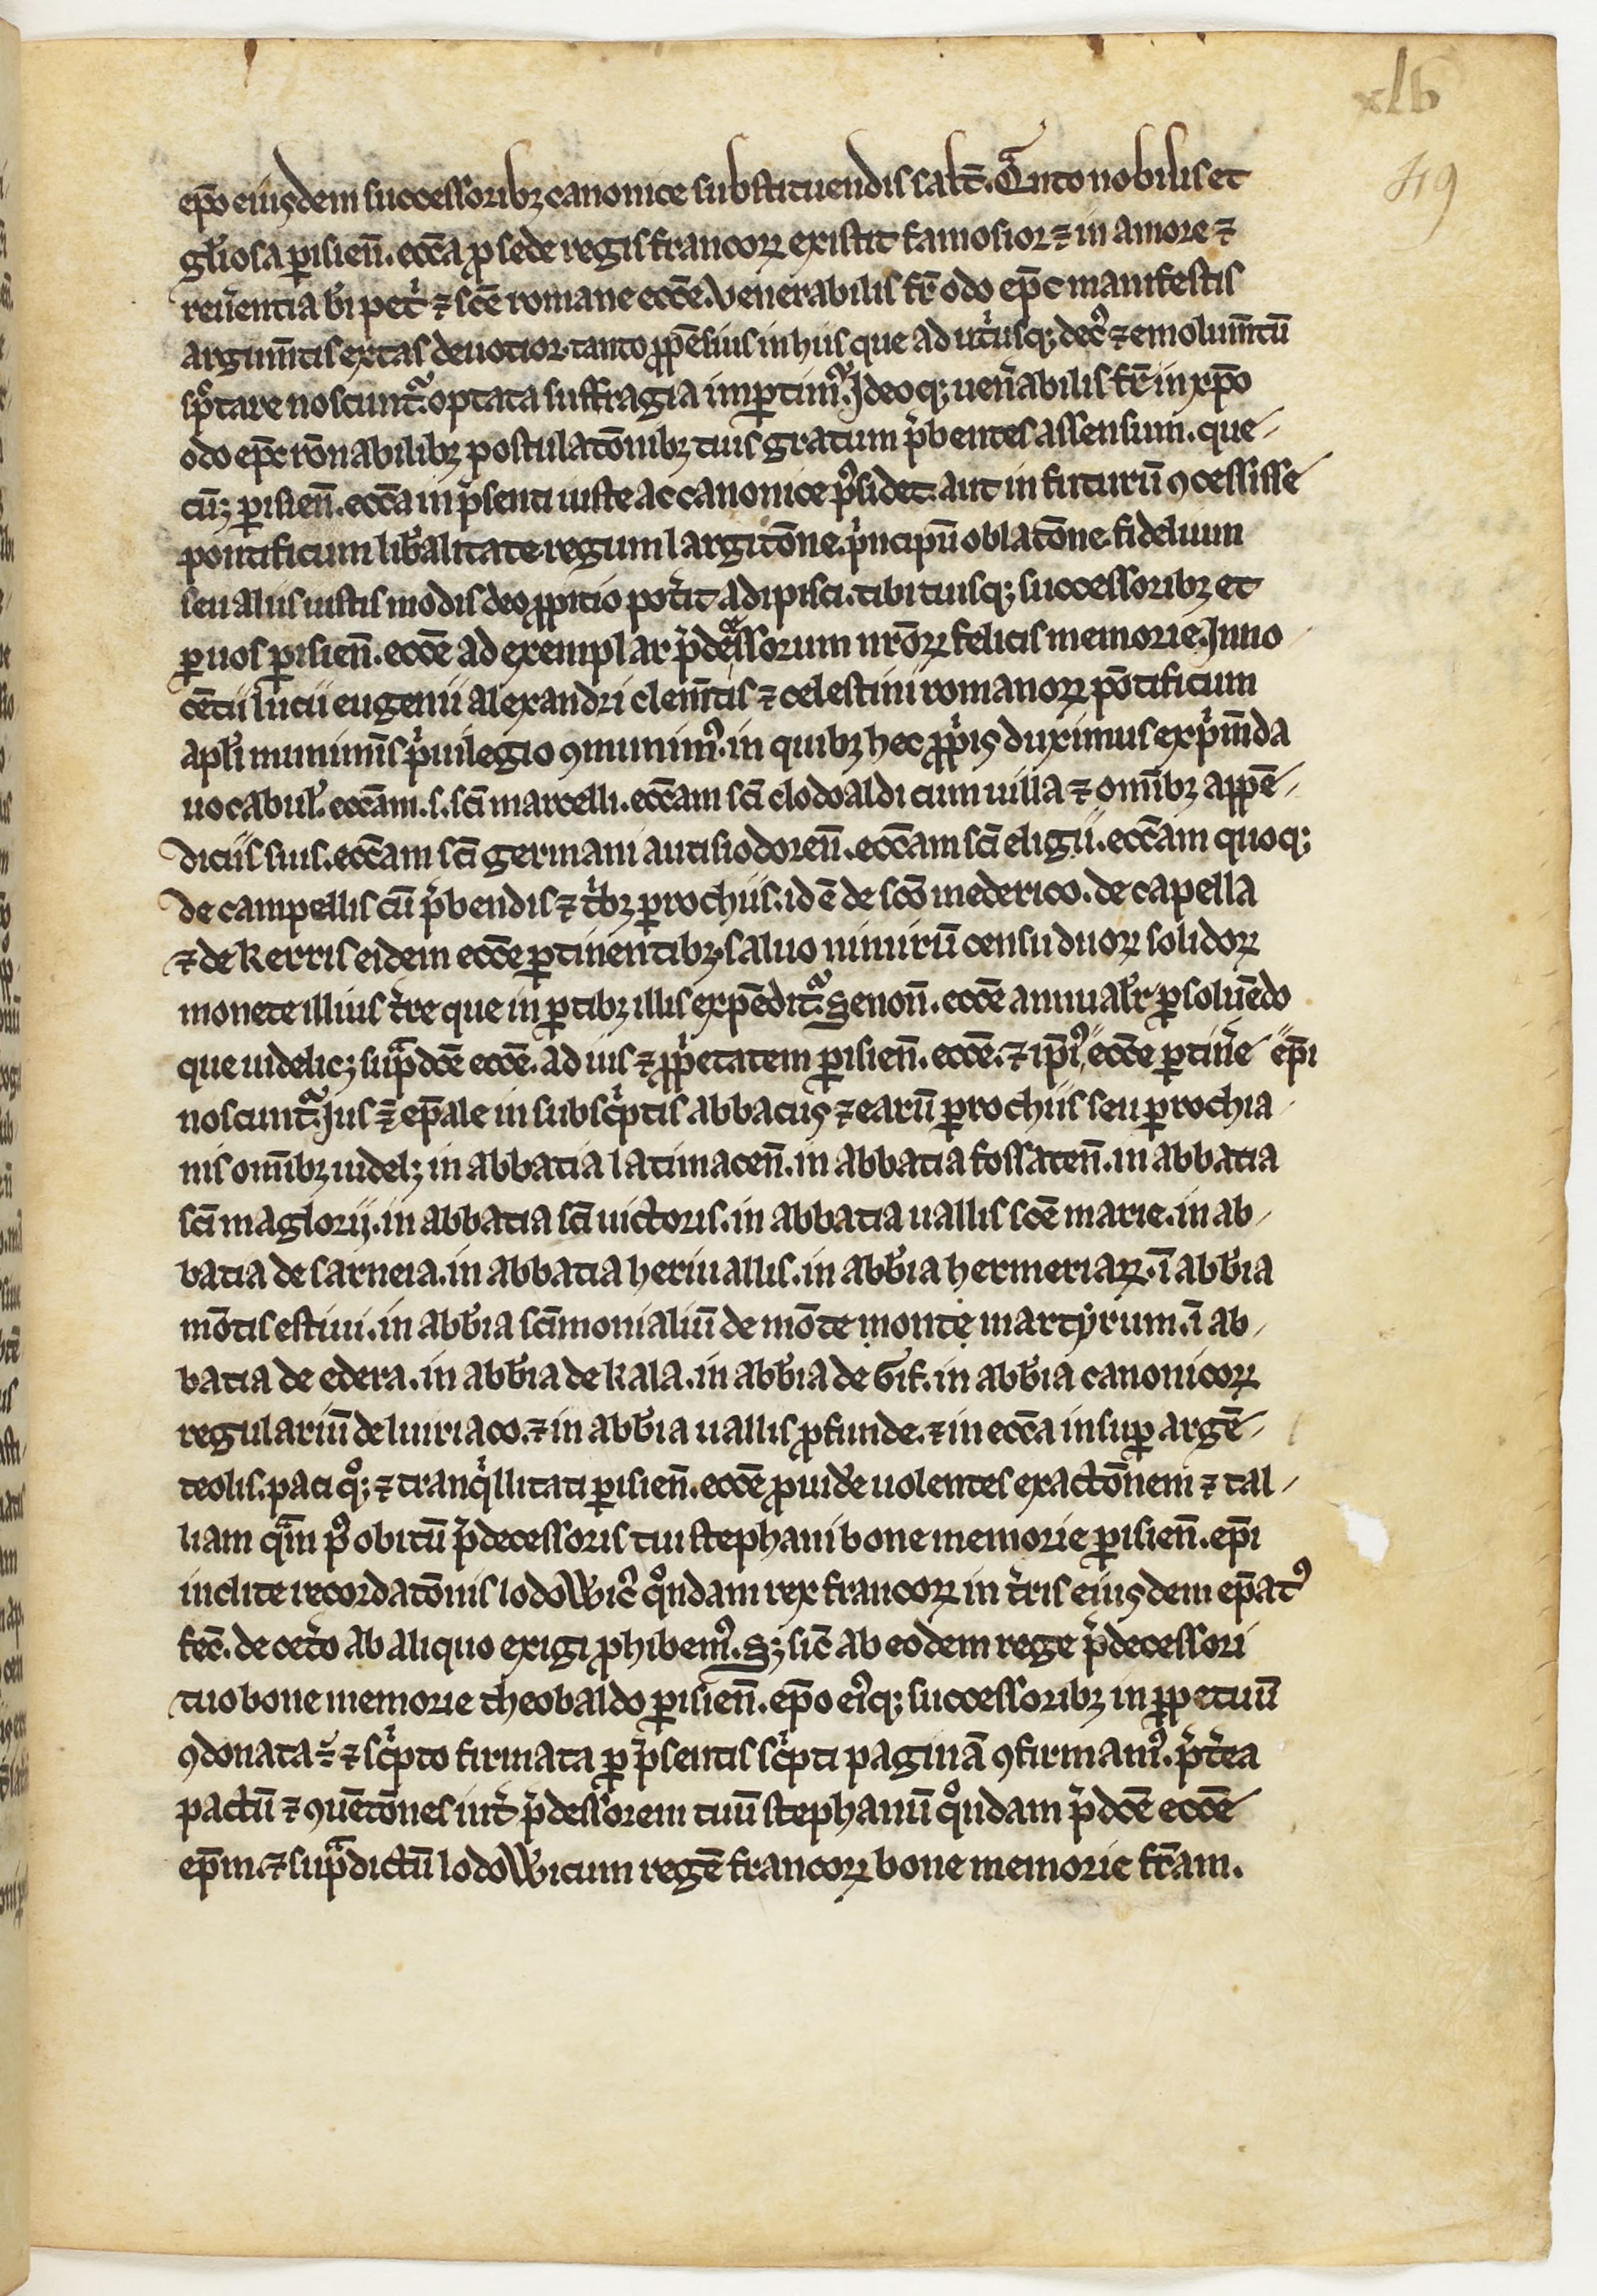 xlv
49
ep̄o eiusdem successoribꝫ canonice substituendis salt̄. Qᵃnto nobilis et
gl̓iosa ꝑisien̄. ecc̄a ꝓ sede regis francoꝝ existit famosior ⁊ in amore ⁊
reu̓entia b̓i pet̓ ⁊ sc̄e romane ecc̄e. Venerabilis fr̄ odo ep̄c manifestis
argum̄tis extas deuotior. tanto ꝓpēsius in hiis que ad ut̓usqꝫ decꝰ ⁊ emolum̄tū
sp̓tare noscuntᵃ. optata suffragia imꝑtimꝰ. Ideoqꝫ uen̓abilis fr̄ in xp̄o
odo ep̄c rōnabilibꝫ postulatōnibꝫ tuis gratum p̓bentes assensum. que-
cūꝫ ꝑisien̄. ecc̄a in p̓senti iuste ac canonice pꝰsidet. aut in futurū ꝯcessisse
pontificum lib̓alitate regum largitōne. pⁱncipū oblatōne fidelium
seu aliis iustis modis deo ꝓpitio pot̓it adipisci. tibi tuisqꝫ successoribꝫ et
ꝑ uos ꝑisien̄. ecc̄e ad exemplar p̓deᵃssorum nr̄oꝝ felicis memorie. Inno
cētii lucii eugenii alexandri clem̄tis ⁊ celestini romanoꝝ pōtificum
apl̓i munim̄s pⁱuilegio ꝯmunimꝰ. in quibꝫ hec ꝓpⁱis duximus expⁱm̄da
uocabul̓. ecc̄am. s. sc̄i marcelli. ecc̄am sc̄i clodoaldi cum uilla ⁊ om̄ibꝫ appē-
diciis suis. ecc̄am sc̄i germani autisiodoren̄. ecc̄am sc̄i eligii. ecc̄am quoqꝫ
de campellis cū p̓bendis ⁊ t̓bꝫ ꝑrochiis. id ē de sc̄o mederico. de capella
⁊ de kerris eidem ecc̄e ꝑtinentibꝫ. saluo nimirū censu duoꝝ solidoꝝ
monete illius t̓re que in ꝑtibꝫ illis expēditᵃ. Senon̄. ecc̄e annual̓r ꝑsoluēdo
que uidelicꝫ supᵃdc̄e ecc̄e. ad ius ⁊ ꝓpⁱetatem ꝑisien̄. ecc̄e. ⁊ ip̄iꝰ ecc̄e ꝑtin̓e ep̄i
noscuntᵃ. Jus ⁊̄ ep̄ale in subscⁱptis abbaciis ⁊ earū ꝑrochiis seu ꝑrochia-
nis om̄ibꝫ uidelꝫ in abbatia latiniacen̄. in abbatia fossaten̄. in abbatia
sc̄i maglorij. in abbatia sc̄i uictoris. in abbatia uallis sc̄e marie. in ab-
batia de sarneia. in abbatia heriuallis. in abb̓ia hermeriaꝝ. ī abb̓ia
mōtis estiui. in abb̓ia sc̄imonialiū de mōte monte martyrum. ī ab-
batia de edera. in abb̓ia de kala. in abb̓ia de Gif. in abb̓ia canonicoꝝ
regulariū de liuriaco. ⁊ in abb̓ia uallis ꝓfunde. ⁊ in ecc̄a insuꝑ argē-
teolis. paci qͦꝫ ⁊ tranqⁱllitati ꝑisien̄. ecc̄e ꝓuid̓e uolentes exactōnem ⁊ tal-
liam qᵃm pꝰ obitū p̓decessoris tui stephani bone memorie ꝑisien̄. ep̄i
inclite recordatōnis lodowic̓ qͦndam rex francoꝝ in t̓ris eiusdem ep̄atꝰ
fec̄. de cet̓o ab aliquo exigi ꝓhibemꝰ. Sꝫ sic̄ ab eodem rege p̓decessori
tuo bone memorie theobaldo ꝑisien̄. ep̄o eiꝰqꝫ successoribꝫ in ꝑpetuū
ꝯdonata ⁊̄ ⁊ scⁱpto firmata ꝑ p̓sentis scⁱpti paginā ꝯfirmamꝰ. p̓t̓ea
pactū ⁊ ꝯuētōnes int̓ p̓dess̓orem tuū stephanū qͦndam p̓dc̄e ecc̄e
ep̄m. ⁊ supᵃdictū lodowicum regē francoꝝ bone memorie fc̄am.